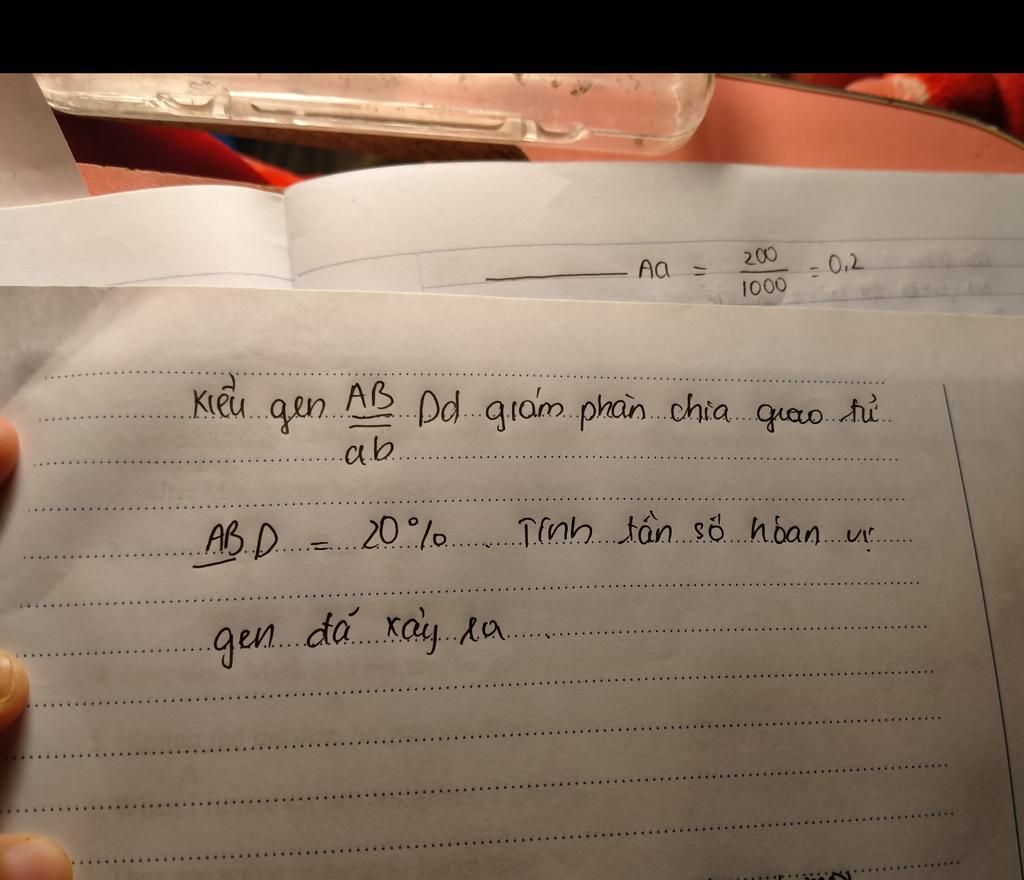 Aa = 200/1000 = 0,2
Kiểu gen AB/ab Dd giảm phân chia giao tử
AB D = 20% Tính tần số hóan vị
gen đã xảy ra